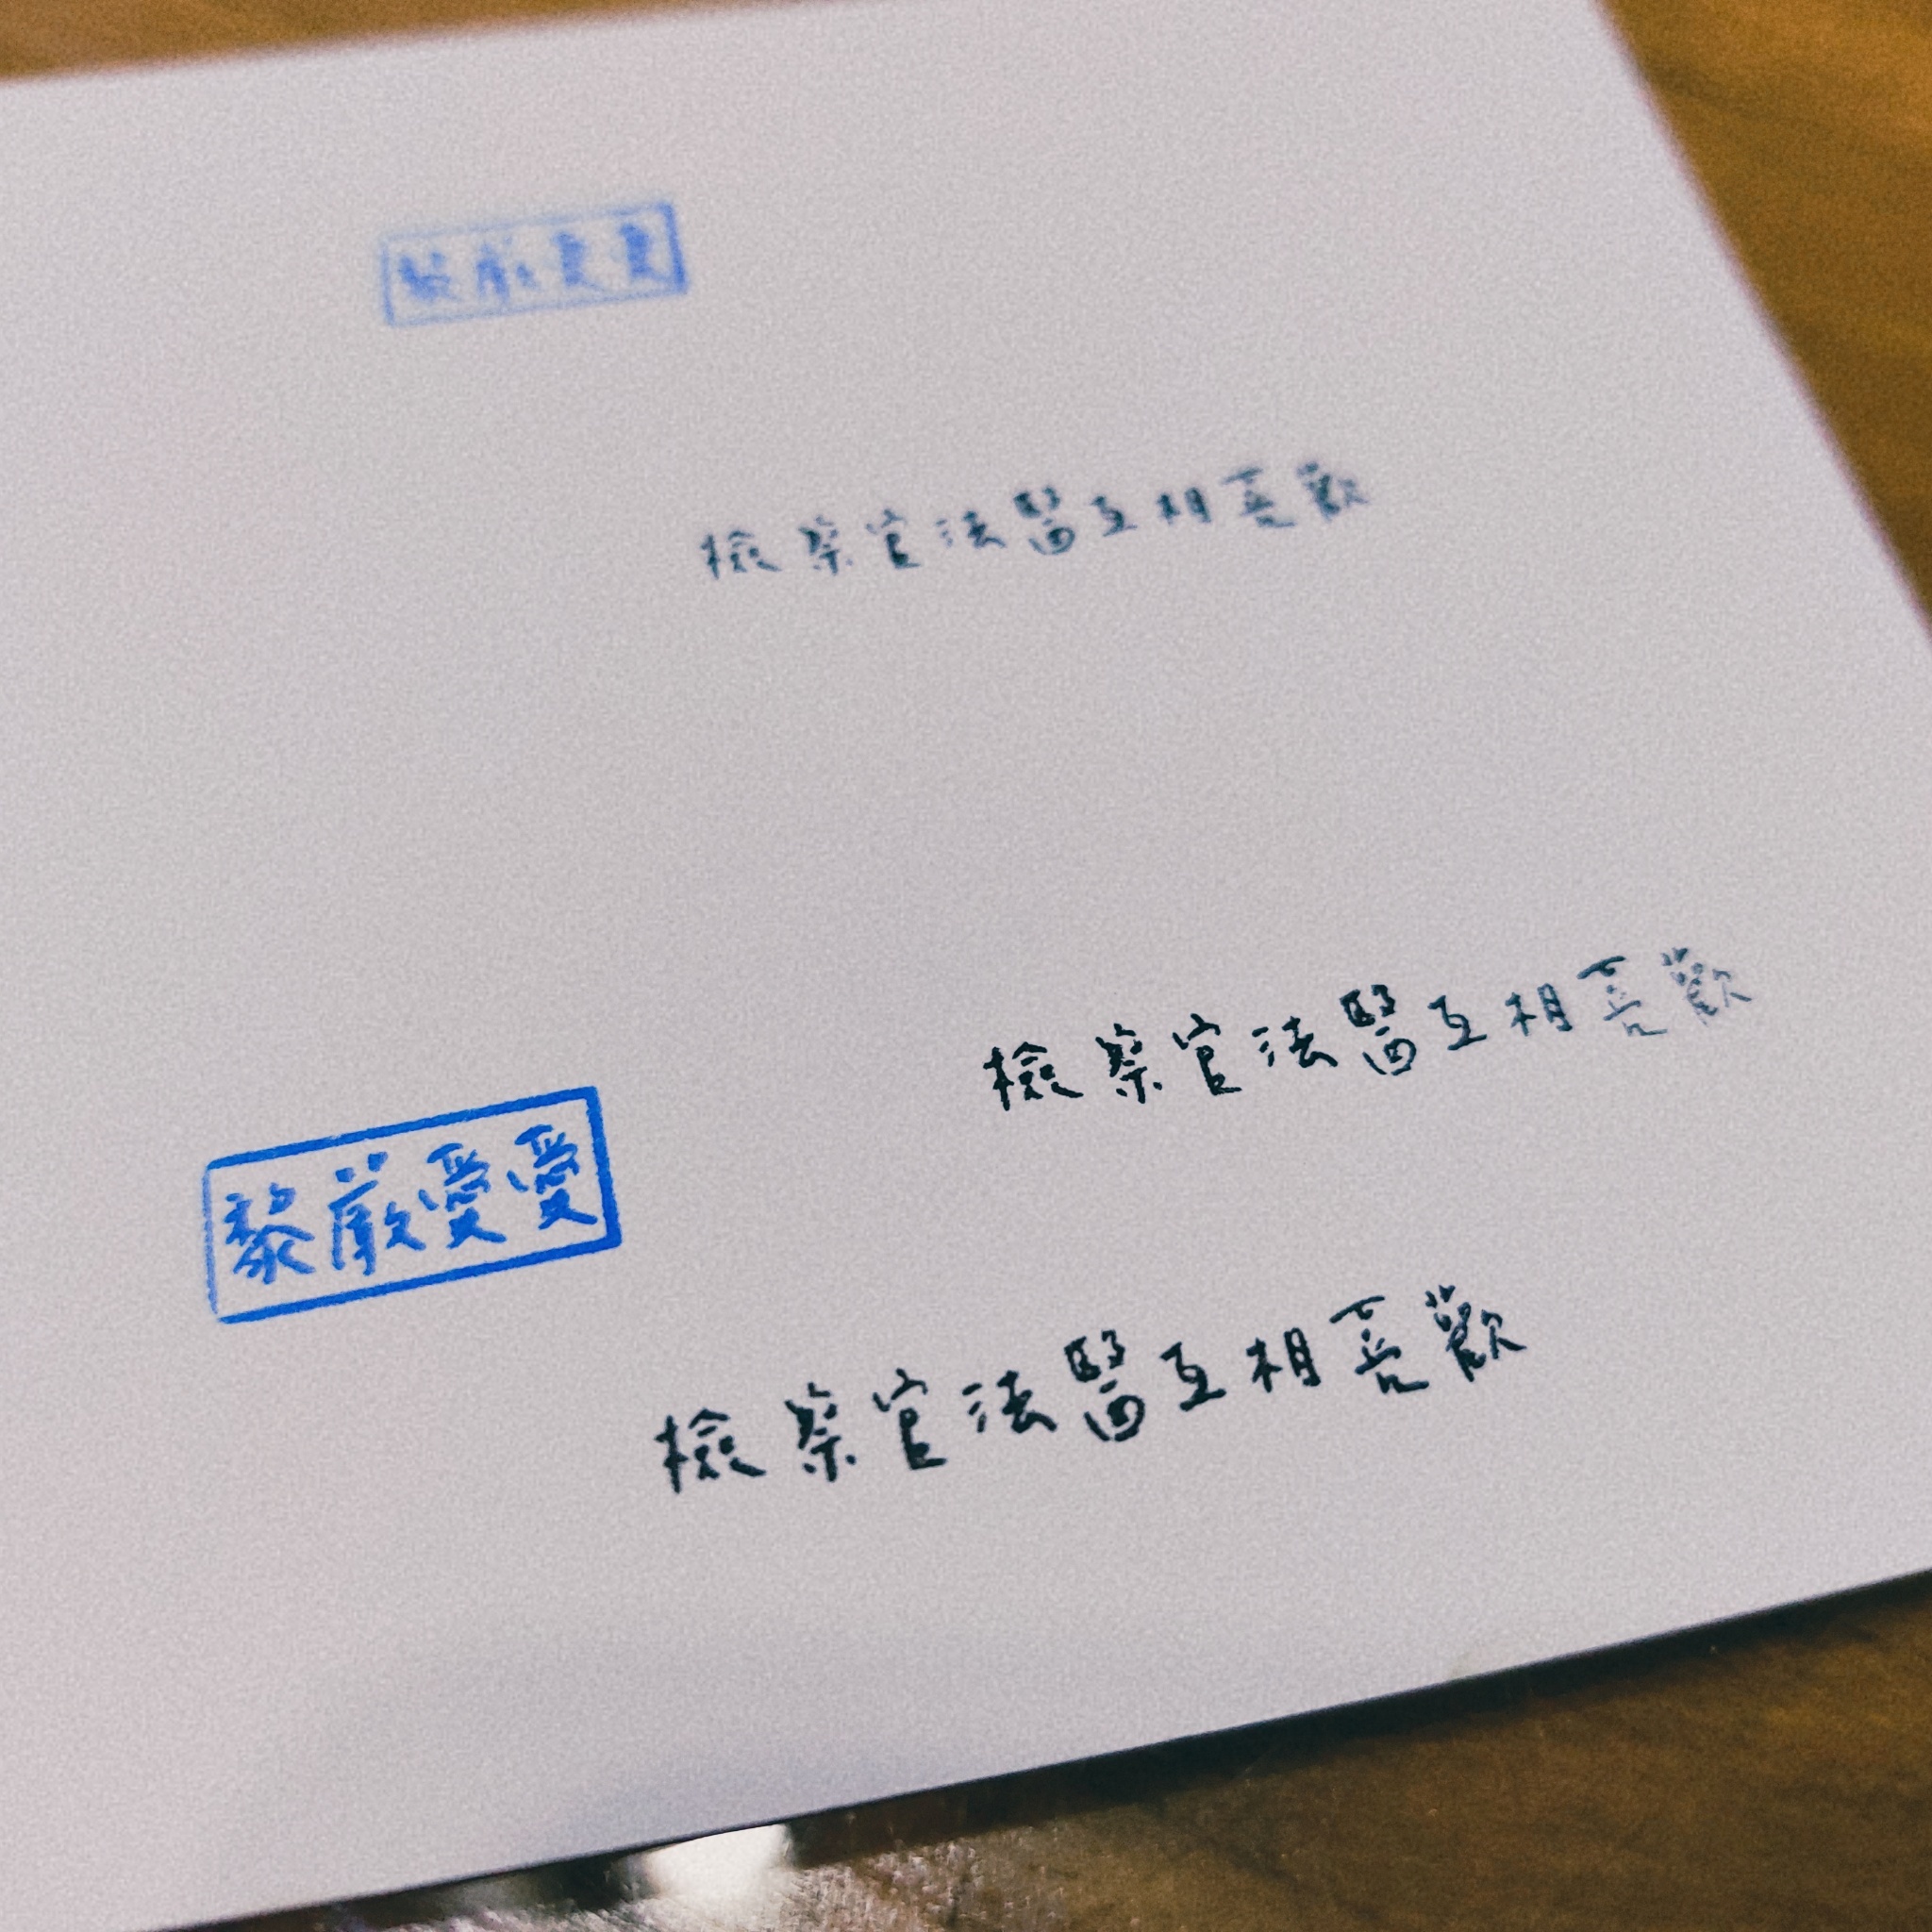 黎嚴愛愛
檢察官法醫互相喜歡
檢察官法醫互相喜歡
黎嚴愛愛
檢察官法醫互相喜歡